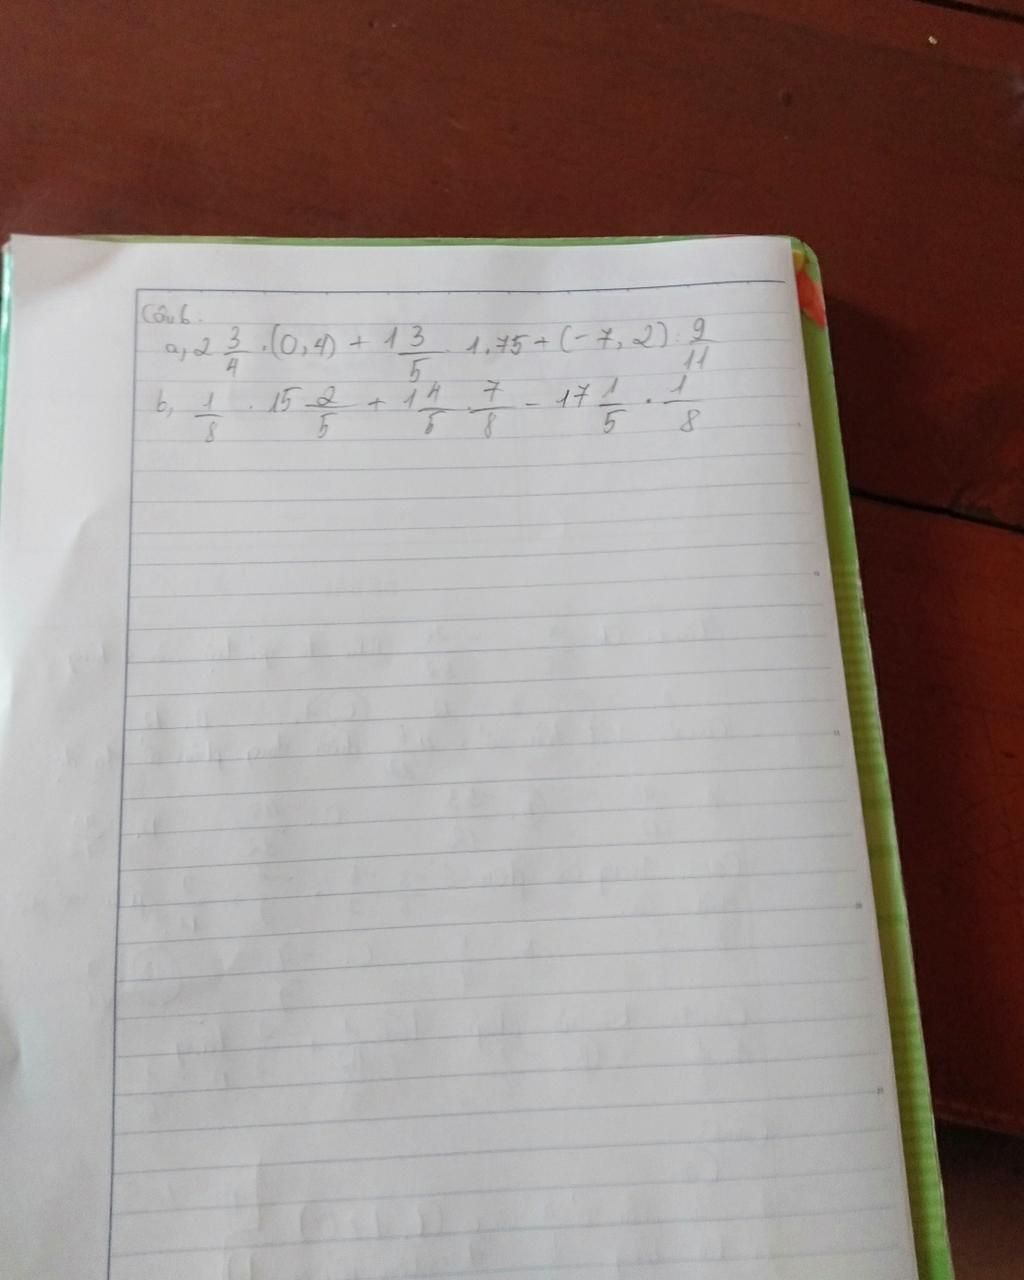 Câu 6:
a, 2 3/4 . (0,4) + 1 3/5 . 1,75 + (-7,2) : 9/11
b, 1/8 . 15 2/5 + 1 4/5 . 7/8 - 17 1/5 . 1/8